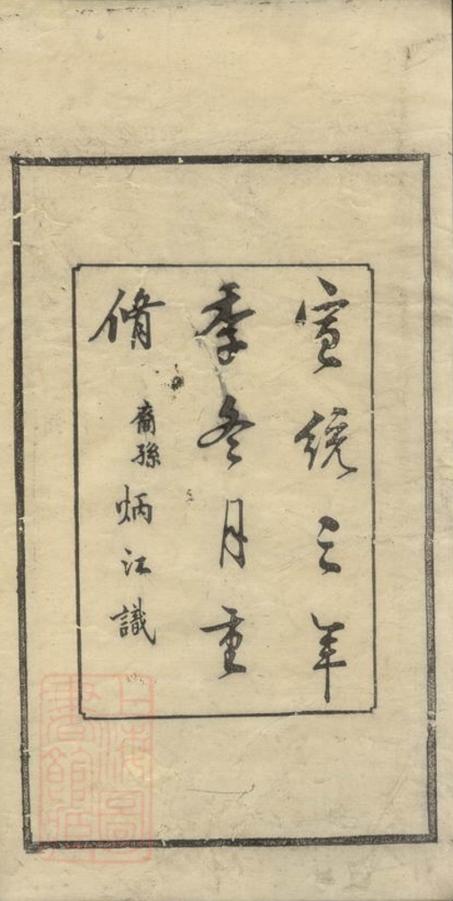 宣統三年
季冬月重
脩 裔孫炳江識
上海圖書館藏